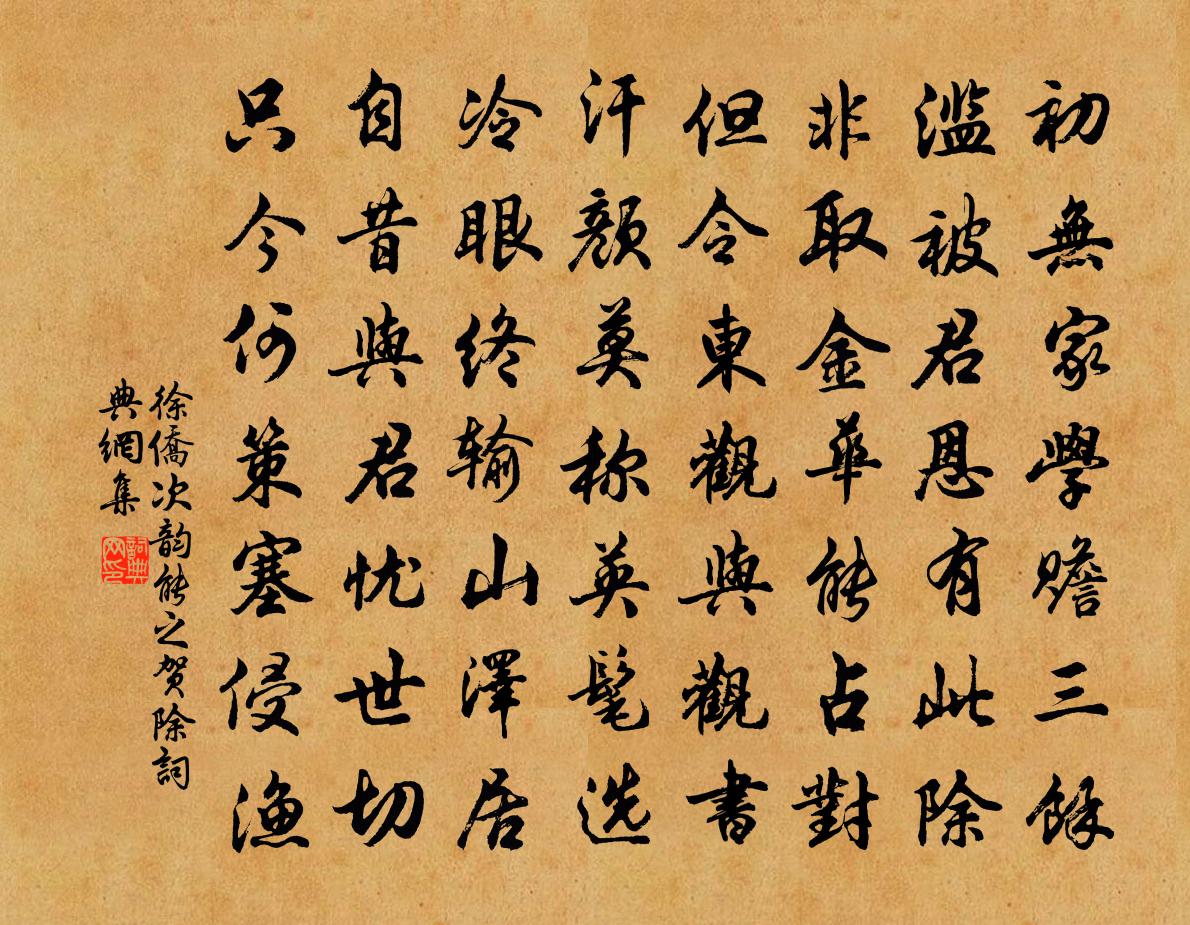 初無家學贍三餘
滥被君恩有此除
非取金華能占對
但令東觀與觀書
汗颜莫称英髦选
冷眼终输山澤居
自昔與君忧世切
只今何策塞侵渔
徐僑次韵能之贺除詞
典網集
詞典網印